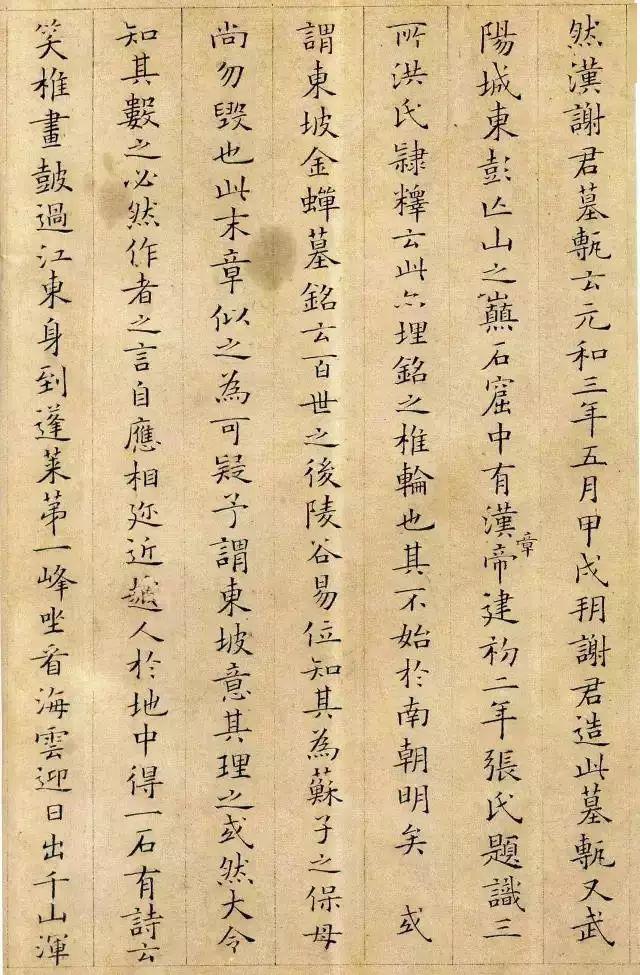 然漢謝君墓甎云元和三年五月甲戌朔謝君造此墓甎又武
陽城東彭亾山之巔石窟中有漢章帝建初二年張氏題識三
所洪氏隷釋云此亦埋銘之椎輪也其不始於南朝明矣 或
謂東坡金蟬墓銘云百世之後陵谷易位知其為蘇子之保母
尚勿毀也此末章似之為可疑予謂東坡意其理之或然大令
知其數之必然作者之言自應相近越人於地中得一石有詩云
笑椎畫鼓過江東身到蓬萊第一峰坐看海雲迎日出千山渾